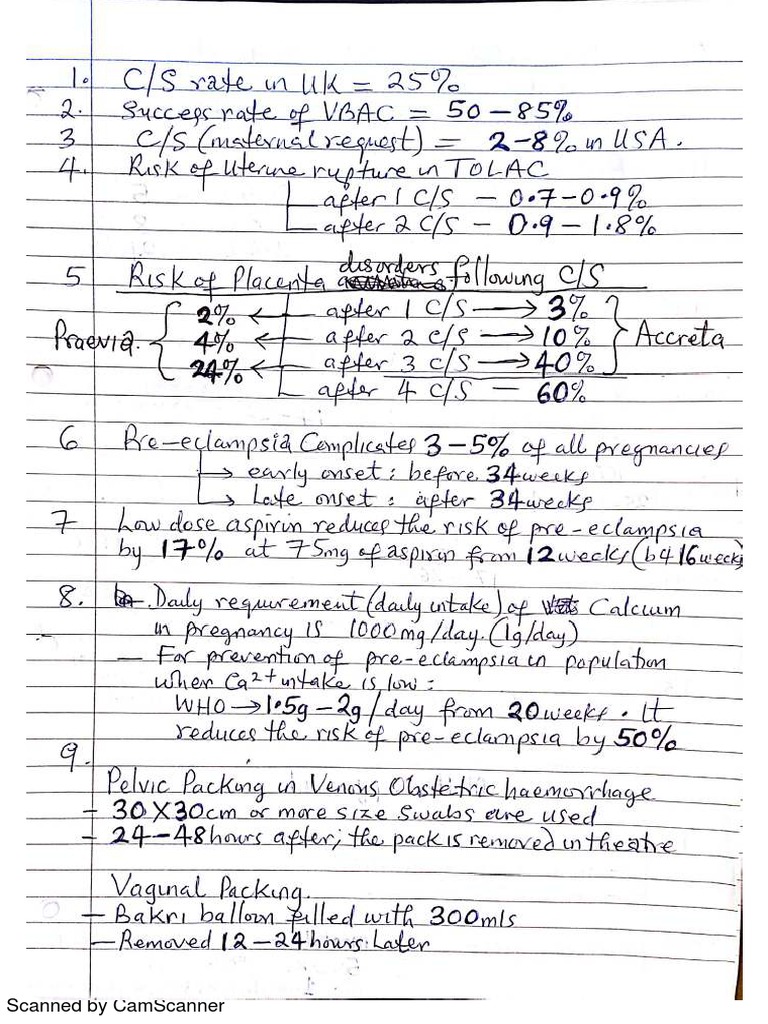 1. C/S rate in UK = 25%
2. Success rate of VBAC = 50 – 85%
3 C/S (maternal request) = 2-8% in USA.
4. Risk of Uterine rupture in TOLAC
after 1 C/S – 0.7 – 0.9%
after 2 C/S – 0.9 – 1.8%
5 Risk of Placenta disorders following C/S
Praevia { 2% ← after 1 C/S → 3% } Accreta
4% ← after 2 C/S → 10%
24% ← after 3 C/S → 40%
after 4 C/S – 60%
6 Pre-eclampsia Complicates 3 – 5% of all pregnancies
→ early onset : before 34 weeks
→ Late onset : after 34 weeks
7 Low dose aspirin reduces the risk of pre-eclampsia
by 17% at 75mg of aspirin from 12 weeks (b4 16 weeks
8. – Daily requirement (daily intake) of Calcium
in pregnancy is 1000 mg/day. (1g/day)
– For prevention of pre-eclampsia in population
when Ca2+ intake is low :
WHO → 1.5g – 2g / day from 20 weeks . It
reduces the risk of pre-eclampsia by 50%
9.
Pelvic Packing in Venous Obstetric haemorrhage
– 30 X 30 cm or more size Swabs are used
– 24 – 48 hours after; the pack is removed in theatre
Vaginal Packing.
– Bakri balloon filled with 300 mls
– Removed 12 – 24 hours Later
Scanned by CamScanner